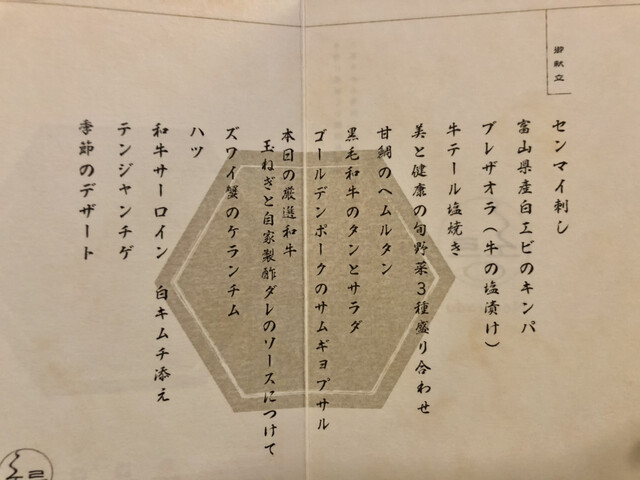 御献立
センマイ刺し
富山県産白エビのキンパ
ブレザオラ(牛の塩漬け)
牛テール塩焼き
美と健康の旬野菜3種盛り合わせ
甘鯛のヘムルタン
黒毛和牛のタンとサラダ
ゴールデンポークのサムギョプサル
本日の厳選和牛
玉ねぎと自家製酢ダレのソースにつけて
ズワイ蟹のケランチム
ハツ
和牛サーロイン 白キムチ添え
テンジャンチゲ
季節のデザート